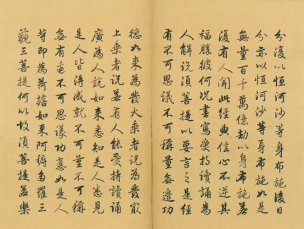 分復以恒河沙等身布施後日
分亦以恒河沙等身布施如是
無量百千萬億劫以身布施若
復有人聞此經典信心不逆其
福勝彼何況書寫受持讀誦為
人解說須菩提以要言之是經
有不可思議不可稱量無邊功
德如來為發大乘者說為發最
上乘者說若有人能受持讀誦
廣為人說如來悉知是人悉見
是人皆得成就不可量不可稱
無有邊不可思議功德如是人
等即為荷擔如來阿耨多羅三
藐三菩提何以故須菩提若樂